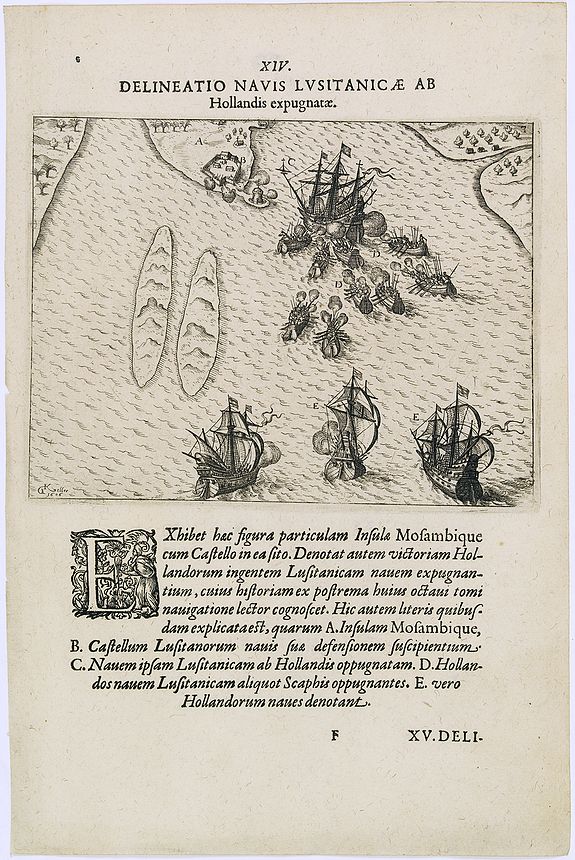 XIV.
DELINEATIO NAVIS LVSITANICÆ AB
Hollandis expugnatæ.
A
B
C
D
D
E
E
EXhibet hæc figura particulam Insulæ Mosambique
cum Castello in ea sito. Denotat autem victoriam Hol-
landorum ingentem Lusitanicam nauem expugnan-
tium, cuius historiam ex postrema huius octaui tomi
nauigatione lector cognoscet. Hic autem literis quibus-
dam explicata est, quarum A. Insulam Mosambique,
B. Castellum Lusitanorum nauis suæ defensionem suscipientium.
C. Nauem ipsam Lusitanicam ab Hollandis oppugnatam. D. Hollan-
dos nauem Lusitanicam aliquot Scaphis oppugnantes. E. vero
Hollandorum naues denotant.
F XV. DELI-